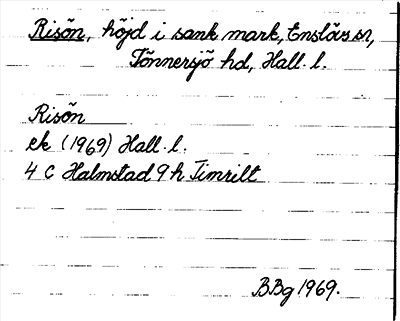 Risön, höjd i sank mark, Enslövs sn,
Tönnersjö hd, Hall. l.
Risön
ek (1969) Hall. l.
4 C Halmstad 9 h Timrilt
BBg 1969.